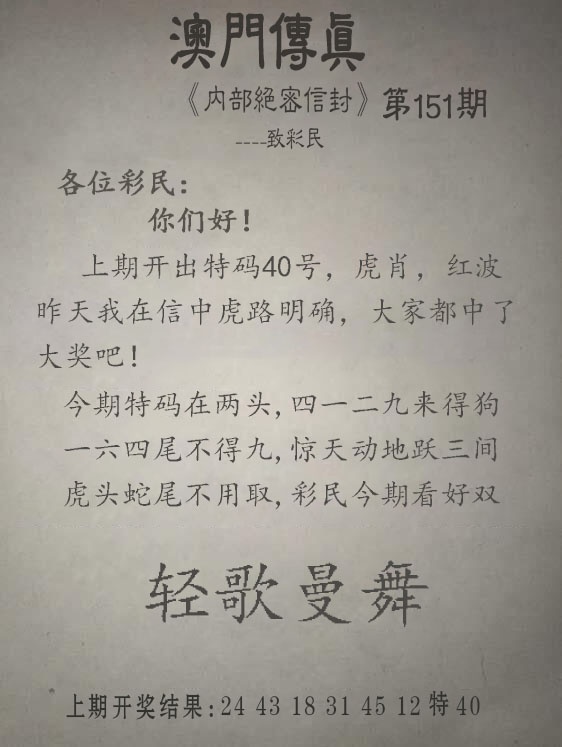 澳門傳眞
《内部絕密信封》第151期
----致彩民
各位彩民：
你们好！
上期开出特码40号，虎肖，红波
昨天我在信中虎路明确，大家都中了
大奖吧！
今期特码在两头,四一二九来得狗
一六四尾不得九,惊天动地跃三间
虎头蛇尾不用取,彩民今期看好双
轻歌曼舞
上期开奖结果:24 43 18 31 45 12特40